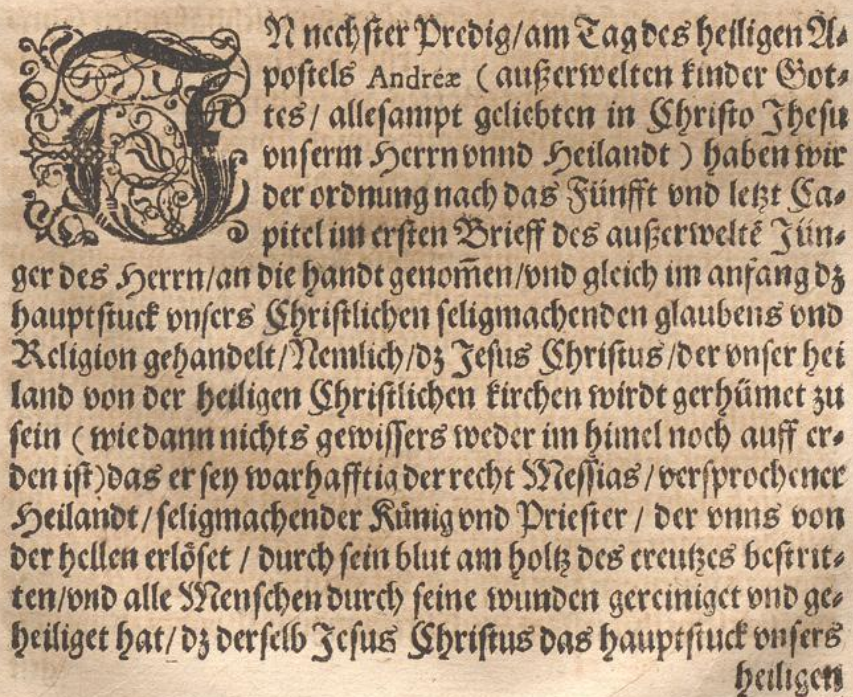 IN nechster Predig/am Tag des heiligen A⸗
postels Andreæ (außerwelten kinder Got⸗
tes/ allesampt geliebten in Christo Jhesu
vnserm Herrn vnnd Heilandt) haben wir
der ordnung nach das Fünfft vnd letzt Ca⸗
pitel im ersten Brieff des außerweltē Jün⸗
ger des Herrn/an die handt genom̄en/vnd gleich im anfang dz
hauptstuck vnsers Christlichen seligmachenden glaubens vnd
Religion gehandelt/Nemlich/dz Jesus Christus/der vnser hei
land von der heiligen Christlichen kirchen wirdt gerhümet zu
sein (wie dann nichts gewissers weder im himel noch auff er⸗
den ist)das er sey warhafftig der recht Messias/versprochener
Heilandt/seligmachender Künig vnd Priester/ der vnns von
der hellen erlöset/ durch sein blut am holtz des creutzes bestrit⸗
ten/vnd alle Menschen durch seine wunden gereiniget vnd ge⸗
heiliget hat/dz derselb Jesus Christus das hauptstuck vnsers
heiligen